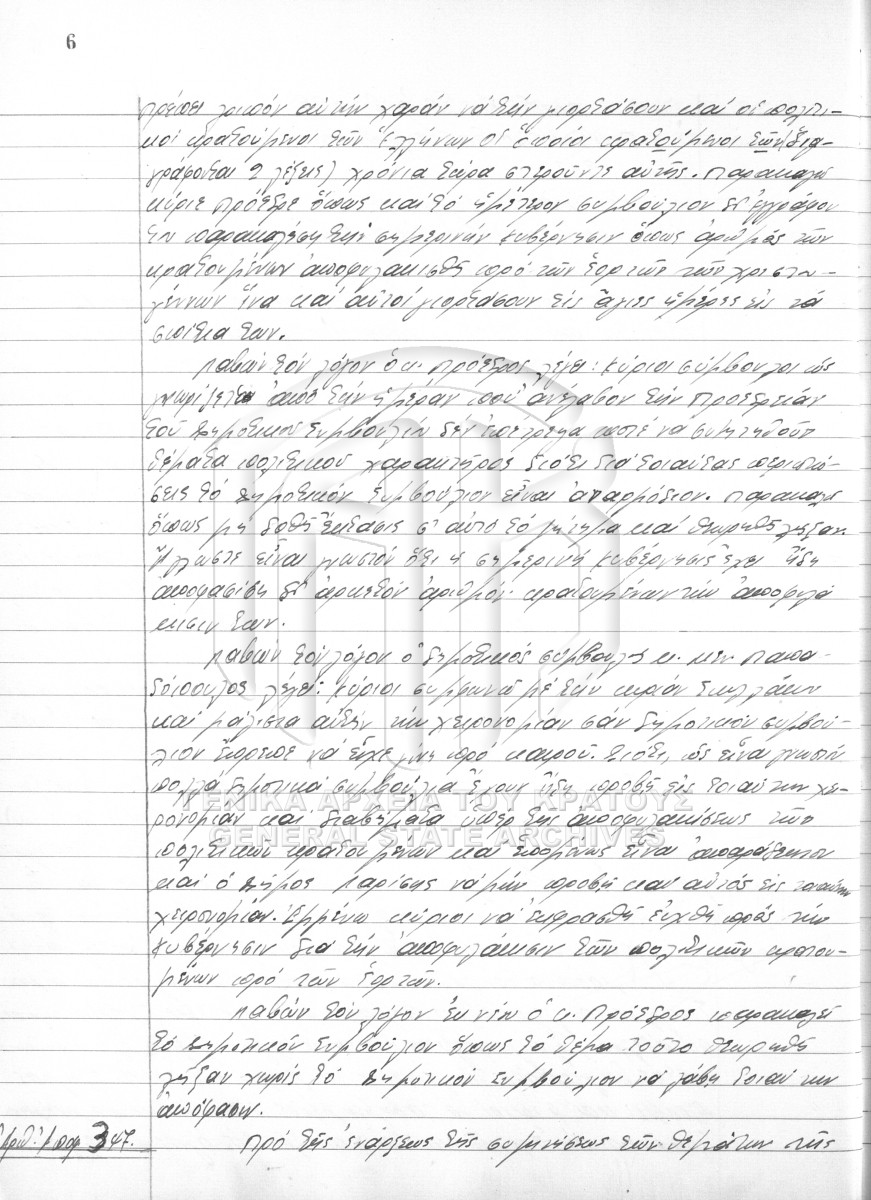 6
πρέπει λοιπόν αὐτήν χαράν νά τήν γιορτάσουν καί οἱ πολιτι-
κοί κρατούμενοι τῶν Ἑλλήνων οἱ ὁποῖοι κρατούμενοι τῶν (δια-
γράφονται 2 λέξεις) χρόνια τώρα στερούντε αὐτῆς. Παρακαλῶ
κύριε Πρόεδρε ὅπως καί τό ἡμέτερον συμβούλιον δι' ἐγγράφου
του παρακαλέση τήν σημερινήν κυβέρνησιν ὅπως ἀριθμός τῶν
κρατουμένων ἀποφυλακισθῆ πρό τῶν ἑορτῶν τῶν χριστου-
γέννων ἵνα καί αὐτοί γιορτάσουν τίς ἅγιες ἡμέρες εἰς τά
σπίτια των.
Λαβών τόν λόγον ὁ κ. Πρόεδρος λέγει: κύριοι σύμβουλοι ὡς
γνωρίζετε ἀπό τήν ἡμέραν πού ἀνέλαβον τήν Προεδρείαν
τοῦ Δημοτικοῦ Συμβουλίου δέν ἐπέτρεψα ποτέ νά συζητηθοῦν
θέματα πολιτικοῦ χαρακτῆρος διότι διά τοιαύτας περιπτώ-
σεις τό Δημοτικόν Συμβούλιον εἶναι ἀναρμόδιον. Παρακαλῶ
ὅπως μή δοθῆ ἔκτασις σ' αὐτό τό ζήτημα καί θεωρηθῆ λῆξαν.
Ἄλλωστε εἶναι γνωστόν ὅτι ἡ σημερινή κυβέρνησις ἔχει ἤδη
ἀποφασίση δι' ἀρκετόν ἀριθμόν κρατουμένων τήν ἀποφυλά
κισιν των.
Λαβών τόν λόγον ὁ δημοτικός σύμβουλος κ. Παπα-
δόπουλος λέγει: κύριοι συμφωνῶ μέ τήν κυρίαν
καί μάλιστα αὐτήν τήν χειρονομίαν σάν Δημοτικόν συμβού-
λιον ἔπρεπε νά εἶχε γίνη πρό καιροῦ. Διότι, ὡς εἶναι γνωστόν
πολλά δημοτικά συμβούλια ἔχουν ἤδη προβῆ εἰς τοιαύτην χει-
ρονομίαν καί διαβήματα ὑπέρ τῆς ἀποφυλακίσεως τῶν
πολιτικῶν κρατουμένων καί ἑπομένως εἶναι ἀπαράδεκτον
καί ὁ Δῆμος Λαρίσης νά μήν προβῆ καί αὐτός εἰς τοιαύτην
χειρονομίαν. Ἐμμένω κύριοι νά ἐκφρασθῆ εὐχή πρός τήν
κυβέρνησιν διά τήν ἀποφυλάκισιν τῶν πολιτικῶν κρατου-
μένων πρό τῶν ἑορτῶν.
Λαβών τόν λόγον ἐκ νέου ὁ κ. Πρόεδρος παρακαλεῖ
τό Δημοτικόν Συμβούλιον ὅπως τό θέμα τοῦτο θεωρηθῆ
λῆξαν χωρίς τό Δημοτικόν Συμβούλιον νά λάβη τοιαύτην
ἀπόφασιν.
Ἀριθ. Ἀποφ 347. Πρό τῆς ἐνάρξεως τῆς συζητήσεως τῶν θεμάτων τῆς
ΓΕΝΙΚΑ ΑΡΧΕΙΑ ΤΟΥ ΚΡΑΤΟΥΣ
GENERAL STATE ARCHIVES